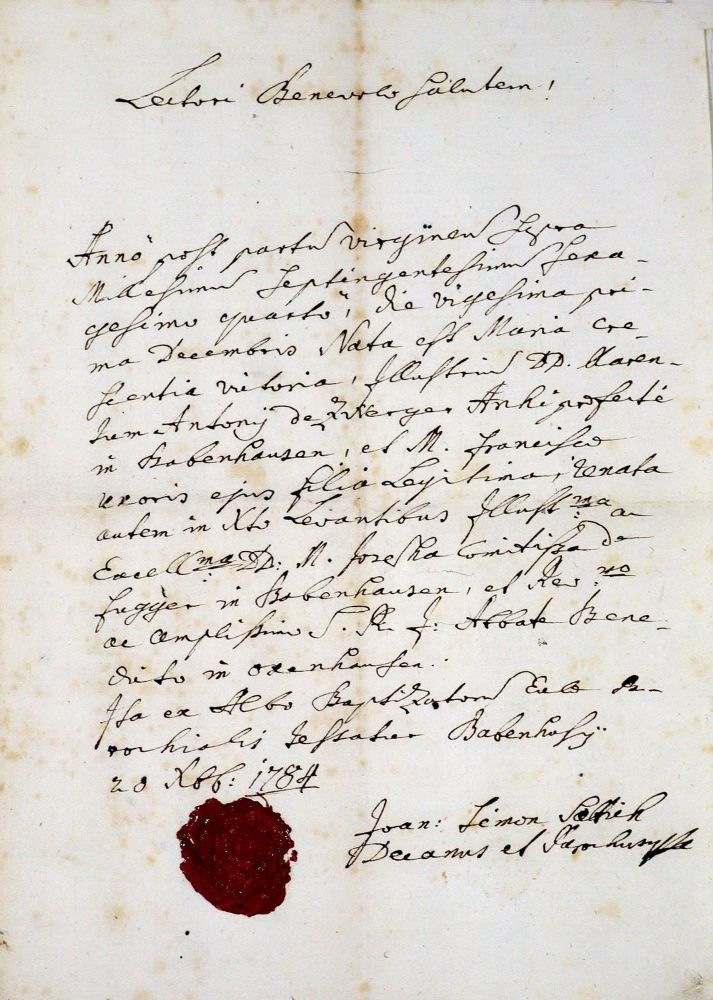 Lectori Benevolo Salutem!
Anno post partũ virgineũ supra
Millesimũ Septingentesimũ Sexa-
gesimo quarto, die vigesima pri-
ma Decembris Nata est Maria Cre-
scentia victoria, Illustrium DD.
Antonij de
in Babenhausen, et M. Francisca
uxoris ejus filia Legitima, renata
autem in Xto Levantibus Illust:ma ac
Excell:ma DD: M. Josepha Comitissa de
Fugger in Babenhausen, et Rev:mo
ac amplissimo S. R. J: Abbate Bene-
dicto in oxenhausen.
Ita ex Albo Baptizatorũ Eccl: Pa-
rochialis testatur Babenhusij
20 Xbb: 1784
Joan: Simon
Decanus et Parochus mpria